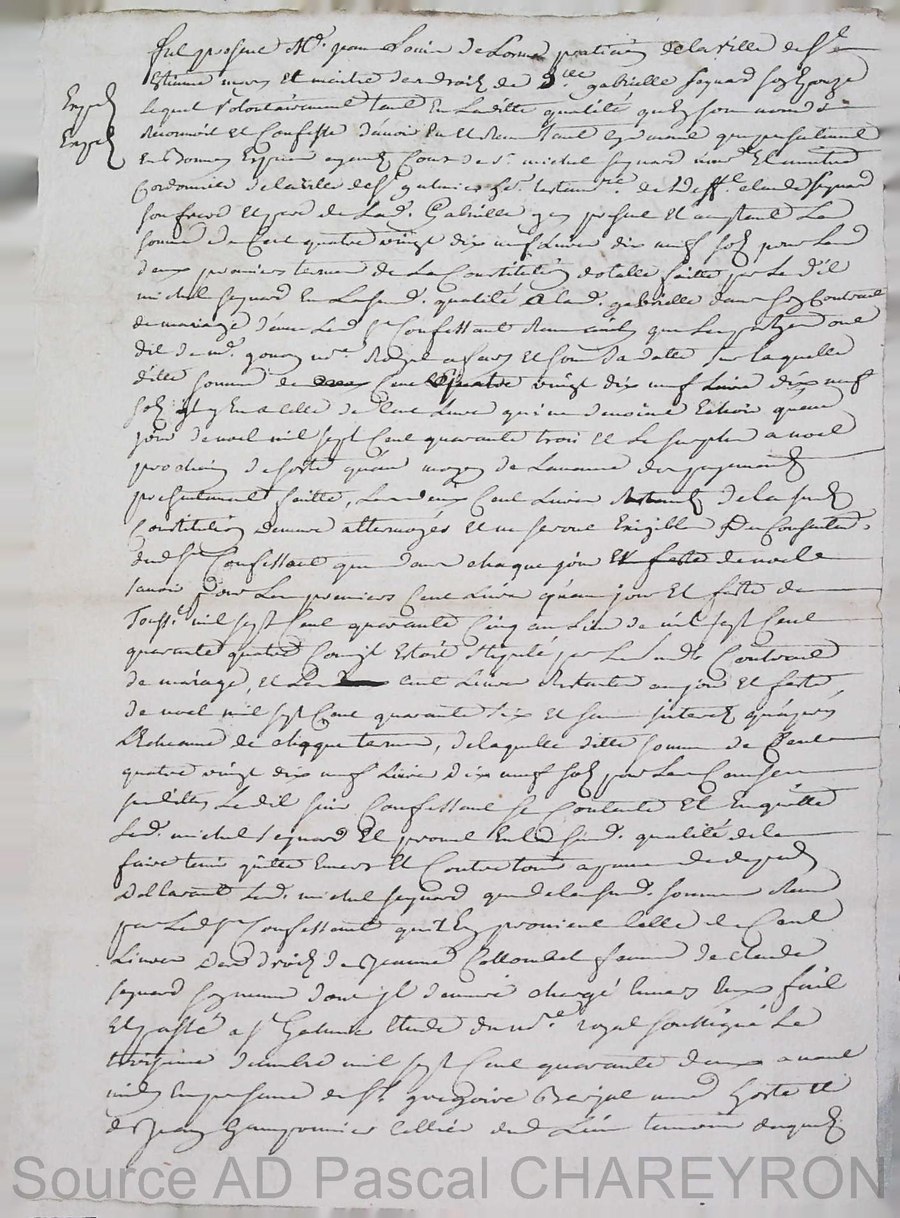 fut presant Mr. jean Louis de Lorme praticien de la ville de St
Etienne mary et maitre des droits de dlle gabrielle seguard son Epouze
lequel volontairement tant En Laditte qualité qu'En son nom a
Reconnu et Confessé d'avoir Eu et Reçu tant cy devant que presentement
En Bonnes Espèces ayant Cours de sr michel seguard mard Et maitre
Cordonnier de la ville de St galmier testamre de defft claude seguard
son frere et pere de Lad. Gabrielle present et acceptant La
somme de Cent quatre vingt dix neuf Livres dix neuf sols pour Les
deux premiers termes de La Constitution dotalle faitte par Le dit
michel seguard En La susd. qualité a lad. gabrielle dans son Contract
de mariage d'avec Led. sr Confessant Reçu que Les parties ont
dit de me. nre. Royal et sous sa datte sur laquelle
ditte somme de Cent quatre vingt dix neuf Livres dix neuf
sols il y En a celle de Cent Livres qui ne devoit Echoir qu'au
jour de noel mil sept Cent quarante trois et Le surplus a noel
prochain de sorte qu'au moyen de Lavance des payements
presentement faitte, Les deux Cent Livres Restantes de la susd.
Constitution demeure attermoyés et ne seront Exigibles du Consentement
dud. sr Confessant que dans chaque jour et feste de noel
savoir pour Les premiers Cent Livres qu'au jour et feste de
Touss. mil sept Cent quarante Cinq au Lieu de mil sept Cent
quarante quatre Comme Estoit stipulé par Le susdt Contract
de mariage, et Les cent Livres Restantes au jour et feste
de noel mil sept Cent quarante six et sans interets qu'après
L'Echeance de chaque terme, de laquelle ditte somme de Cent
quatre vingt dix neuf Livres dix neuf sols pour Les Causes
susdites Le dit sieur Confessant se Contente Et En quitte
Led. michel seguard Et promet En lad. susd. qualité de le
faire tenir quitte Envers Et Contre tous a peine de depends
Declarant Led. michel seguard que de la susd. somme Reçue
par Led. sr Confessant qu'il En provient Celle de Cent
Livres des droits de Jeanne Collombet femme de claude
seguard dont il demeure chargé Envers Eux fait
Et passé a St Galmier Etude du nre. royal soussigné Le
troisieme mil sept Cent quarante deux avant
midy En presence de sr. gregoire mard hoste et
de Jean cellier dud. Lieu temoins
Source AD Pascal CHAREYRON